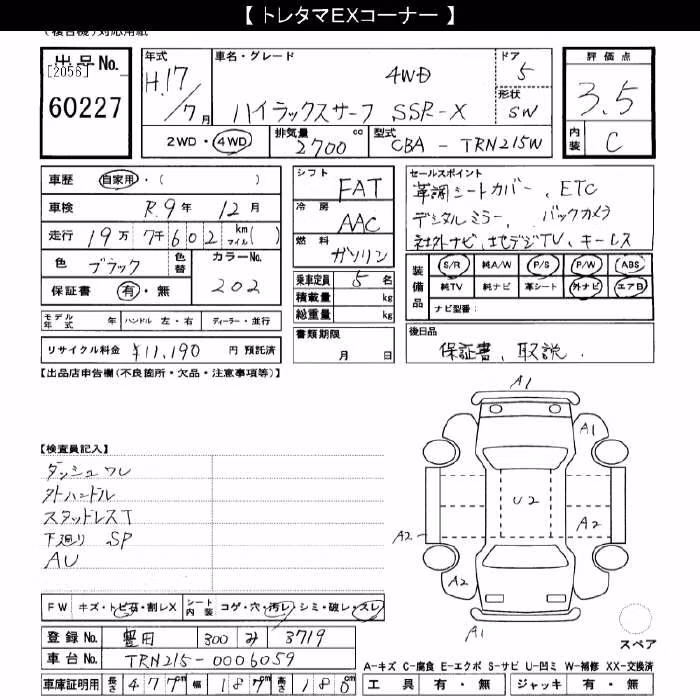 【 トレタマEXコーナー 】
(複合機)対応用紙
出品No.
[2056]
60227
年式
H.17/7月
車名・グレード
4WD
ハイラックスサーフ SSR-X
ドア
5
形状
SW
評価点
3.5
内装
C
2WD・4WD
排気量
2700cc
型式
CBA - TRN215W
車歴 自家用・( )
車検 R.9年 12月
走行 19万7千602 km マイル( )
色 ブラック 色替 カラーNo. 202
保証書 有・無
モデル年式 年 ハンドル 左・右 ディーラー・並行
リサイクル料金 ¥11,190 円 預託済
シフト FAT
冷房 AAC
燃料 ガソリン
乗車定員 5名
積載量 kg
総重量 kg
書類期限
月 日
セールスポイント
革調シートカバー、ETC
デジタルミラー、バックカメラ
社外ナビ、地デジTV、キーレス
装備品
S/R 純A/W P/S P/W ABS
純TV 純ナビ 革シート 外ナビ エアB
ナビ型番:
後日品
保証書、取説、
【出品店申告欄(不良箇所・欠品・注意事項等)】
【検査員記入】
ダッシュワレ
外ハンドル
スタッドレスT
下廻り SP
AU
A1
A1
U2
A2
A2
A2
A1
スペア
FW キズ・トビ石・割レX シート内装 コゲ・穴・汚レ・シミ・破レ・スレ
登録No. 豊田 300 み 3719
車台No. TRN215-0006059
車庫証明用 長さ 477cm 幅 187cm 高さ 180cm
A-キズ C-腐食 E-エクボ S-サビ U-凹ミ W-補修 XX-交換済
工具 有・無 ジャッキ 有・無